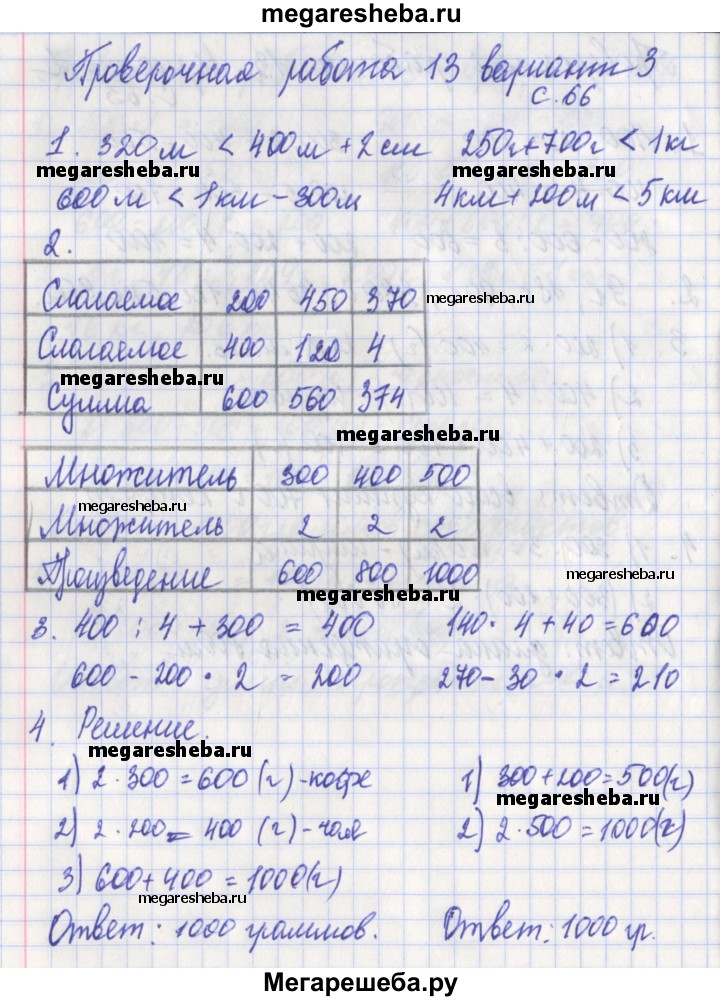 megaresheba.ru
Проверочная работа 13 вариант 3
с. 66
1. 320м < 400м + 2см 250г+700г < 1кг
megaresheba.ru megaresheba.ru
600м < 1км - 300м 4км + 200м < 5км
2.
Слагаемое 200 450 370
megaresheba.ru
Слагаемое 400 120 4
megaresheba.ru
Сумма 600 560 374
megaresheba.ru
Множитель 300 400 500
megaresheba.ru
Множитель 2 2 2
Произведение 600 800 1000
megaresheba.ru
megaresheba.ru
3. 400 : 4 + 300 = 400 140 · 4 + 40 = 600
600 - 200 · 2 = 200 270 - 30 · 2 = 210
4. Решение.
megaresheba.ru
1) 2 · 300 = 600 (г) - кофе 1) 300 + 200 = 500 (г)
megaresheba.ru
2) 2 · 200 = 400 (г) - чая 2) 2 · 500 = 1000 (г)
3) 600 + 400 = 1000 (г)
megaresheba.ru
Ответ: 1000 граммов. Ответ: 1000 гр.
Мегарешеба.ру